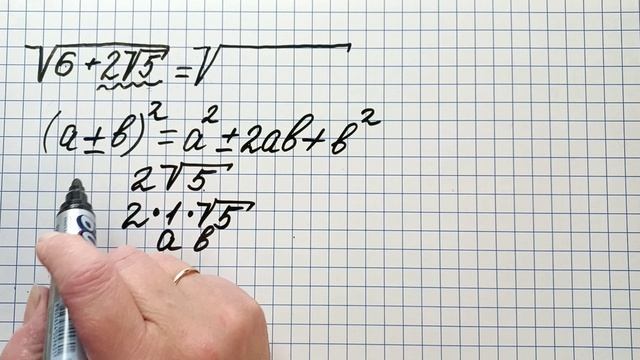 √6 + 2√5 = √
(a ± b)² = a² ± 2ab + b²
2√5
2 · 1 · √5
a b